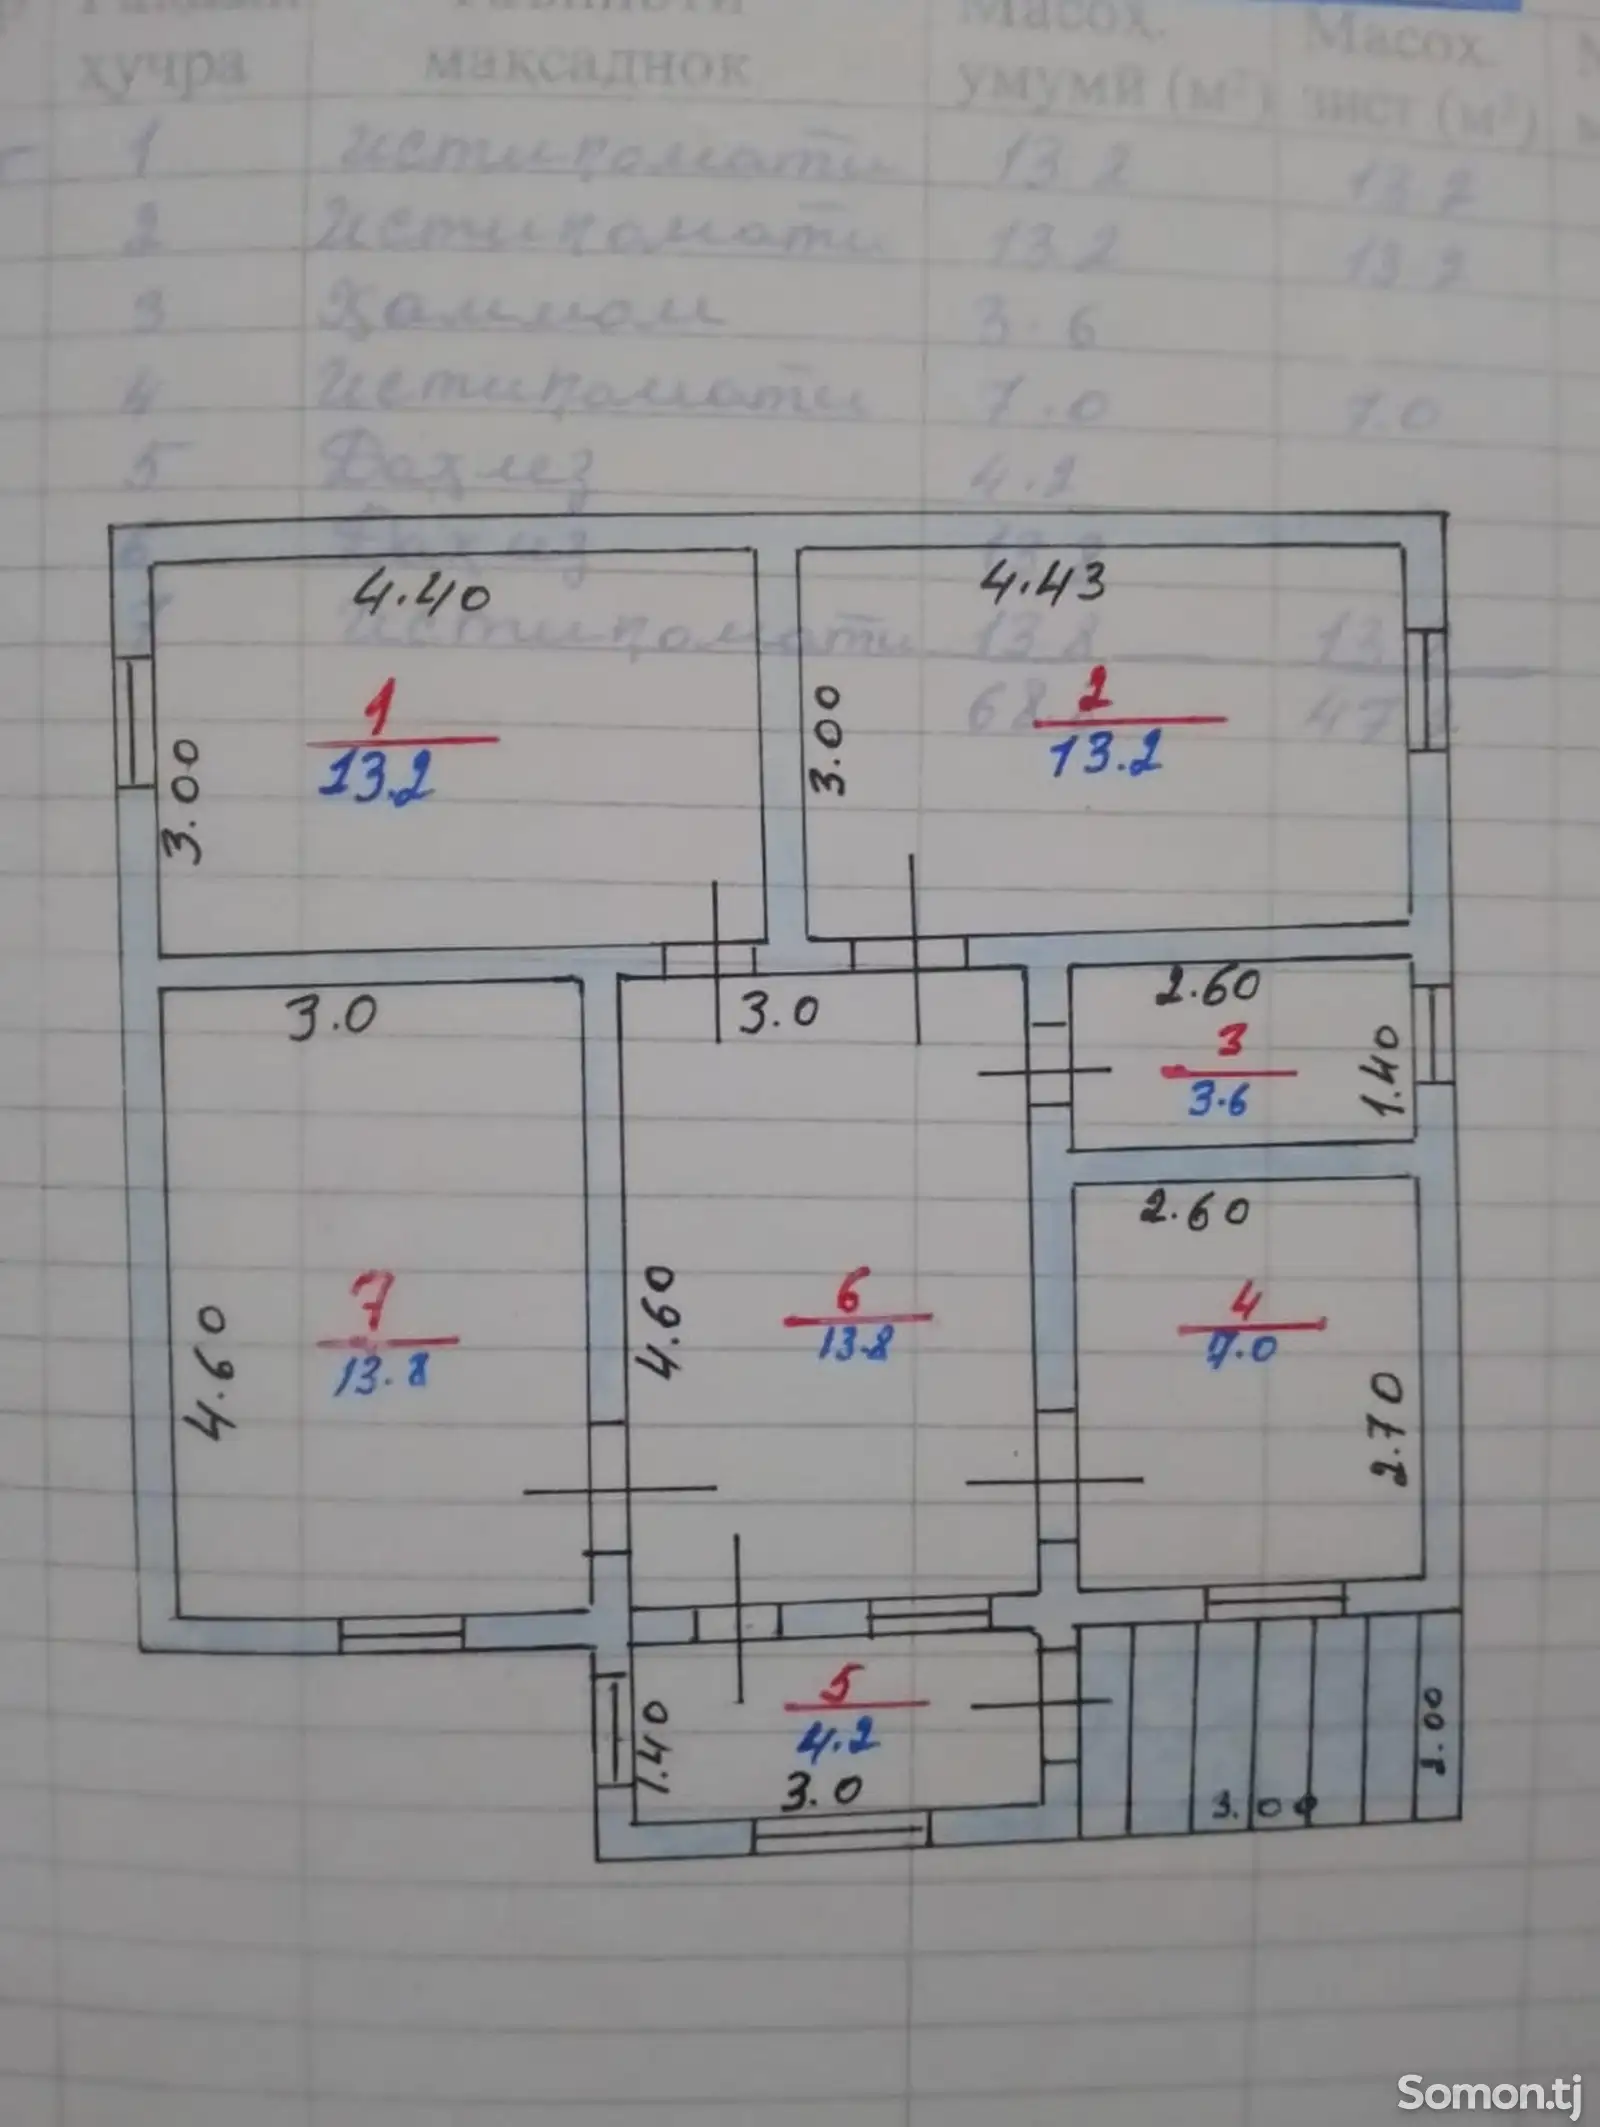 ҳуҷра
мақсаднок
Масоҳ.
умумӣ (м²)
Масоҳ.
зист (м²)
1 истиқоматӣ 13.2 13.2
2 Истиқоматӣ 13.2 13.2
3 Ҳаммом 3.6
4 Истиқоматӣ 7.0 7.0
5 Даҳлез 4.2
6 Даҳлез
7 истиқоматӣ 13.8
4.40
4.43
3.00
1
13.2
3.00
2
13.2
3.0
3.0
2.60
3
3.6
1.40
2.60
4.60
7
13.8
4.60
6
13.8
4
7.0
2.70
5
4.2
1.40
3.0
3.00
Somon.tj